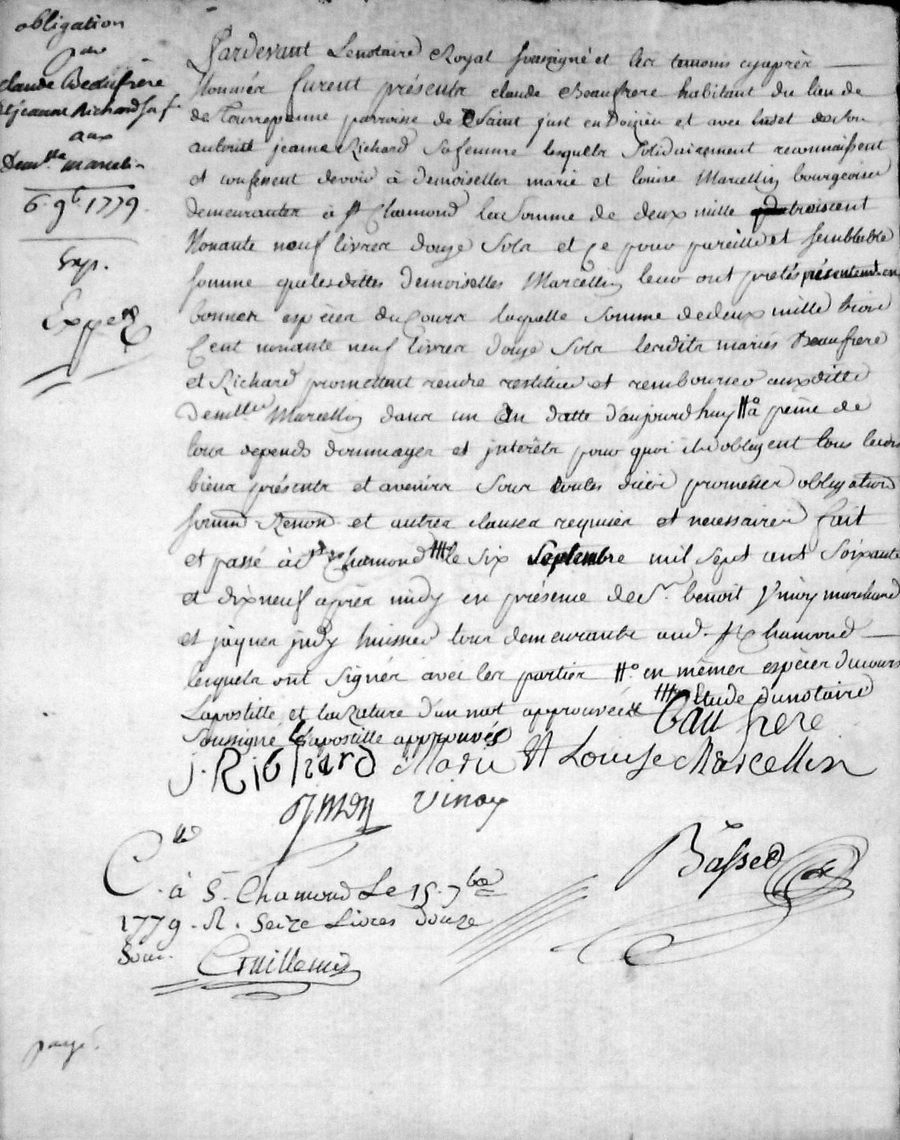 obligation
de
claude Beaufrère
et jeanne Richard sa f.
aux
Dem.lles marcelin
6. 9b. 1779.
Exp.
Expée
Pardevant Le notaire Royal soussigné et les temoins cyaprès
Nommés furent présents claude Beaufrere habitant du lieu de
de Tourrepanne parroisse de Saint just en Doizieu et avec luy et de son
autorité jeanne Richard sa femme lesquels solidairement reconnaissent
et confessent devoir à demoiselles marie et louise Marcellin bourgeoises
demeurantes à St Chamond la somme de deux mille trois cent
Nonante neuf livres douze sols et ce pour pareille et semblable
somme que lesdittes demoiselles Marcellin leur ont pretés présentement en
bonnes espèces du cours laquelle somme de deux mille trois
Cent nonante neuf livres douze sols lesdits mariés Beaufrere
et Richard promettent rendre restituer et rembourser auxdittes
Demlles Marcellin dans un an datte d'aujourd'huy #° à peine de
tous depends dommages et interêts pour quoi ils obligent tous leurs
biens présents et avenirs sous toutes dües promesses obligations
soumis Renon et autres clauses requises et necessaires fait
et passé à St Chamond le six Septembre mil sept cent soixante
et dix neuf après midy en présence de Sr. benoit Vinoy marchand
et jaques judy huissier tous demeurants aud. St Chamond
lesquels ont signés avec les parties #° en mêmes espèces du cours
L'apostille et la rature d'un mot approuvées # Etude du notaire
Soussigné L'apostille approuvés
Baufrere
J. Richard Marie # Louise Marcellin
Vinoy
Basset
C.lé à S. Chamond Le 15. 7bre
1779. R. Seize Livres douze
Sous. Guillemin
payé.